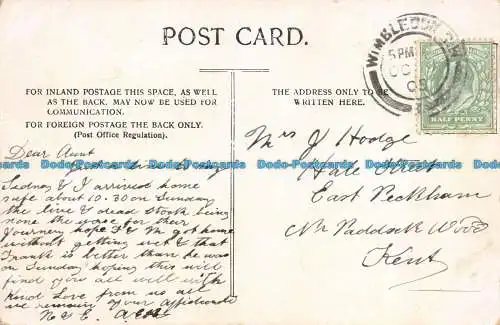 POST CARD.
WIMBLEDON
5 PM
OC
09
HALF PENNY
FOR INLAND POSTAGE THIS SPACE, AS WELL
AS THE BACK, MAY NOW BE USED FOR
COMMUNICATION.
FOR FOREIGN POSTAGE THE BACK ONLY.
(Post Office Regulation).
THE ADDRESS ONLY TO BE
WRITTEN HERE.
Dear Aunt
Just a line to say
Sedney & I arrived home
safe about 10-30 on Sunday
the live & dead Stock being
none the worse for their
Journey hope F & M got home
without getting wet & that
Frank is better than he was
on Sunday hoping this will
find you all well with
Kind Love from us all
we remain your affectionate
N & E.
Mrs J Hodge
Hale Street
East Peckham
Nr Paddock Wood
Kent
Bdo-Postcards Bdo-Postcards Bdo-Postcards Bdo-Postcards